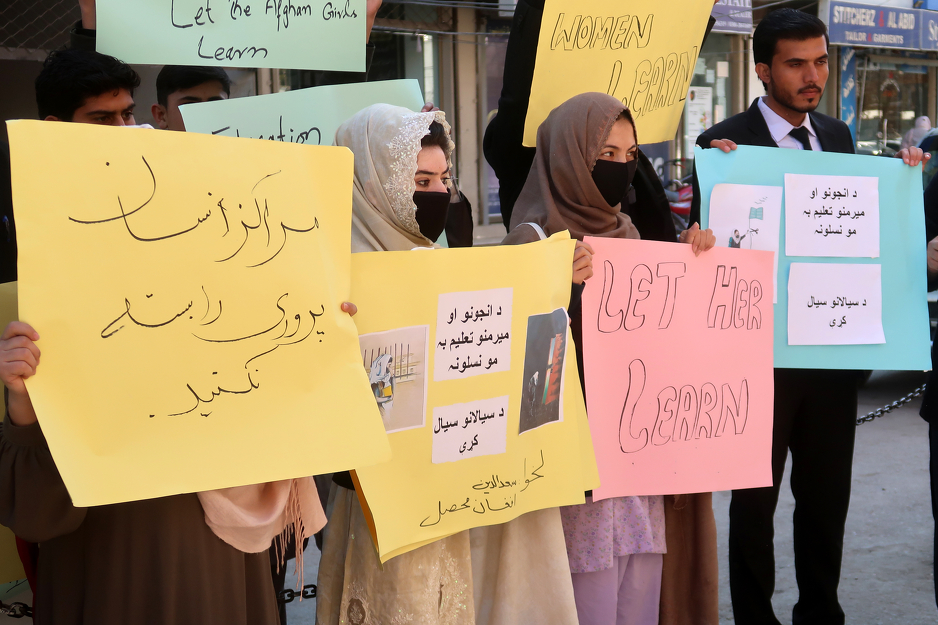 Let the Afghan Girls
Learn
Education
WOMEN
LEARN
STITCHERZ & AL ABID
TAILOR & GARMENTS
مراکز انسان
پروری را بسته
نکنید.
د انجونو او
میرمنو تعلیم به
مو نسلونه
د سیالانو سیال
کړي
سعدالدین
افغان محصل
LET HER
LEARN
د انجونو او
میرمنو تعلیم به
مو نسلونه
د سیالانو سیال
کړي